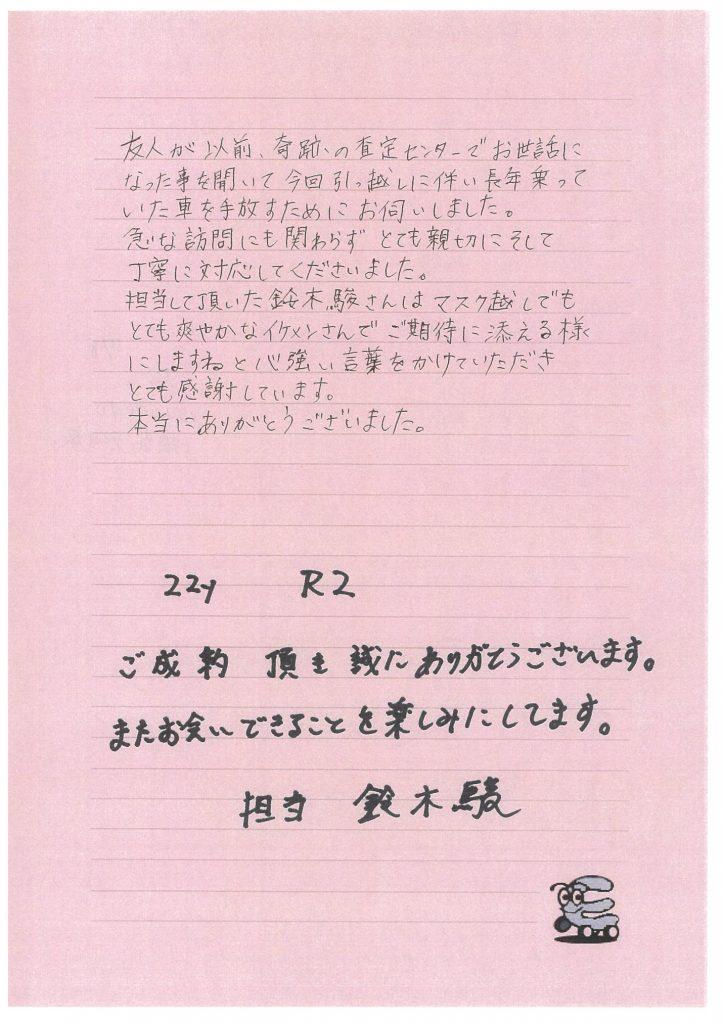 友人が以前、奇跡の査定センターでお世話に
なった事を聞いて今回引っ越しに伴い長年乗って
いた車を手放すためにお伺いしました。
急な訪問にも関わらず とても親切にそして
丁寧に対応してくださいました。
担当して頂いた鈴木駿さんは マスク越しでも
とても爽やかなイケメンさんで ご期待に添える様
にしますねと心強い言葉をかけていただき
とても感謝しています。
本当にありがとうございました。
22y R2
ご成約 頂き 誠にありがとうございます。
またお会いできることを楽しみにしてます。
担当 鈴木駿